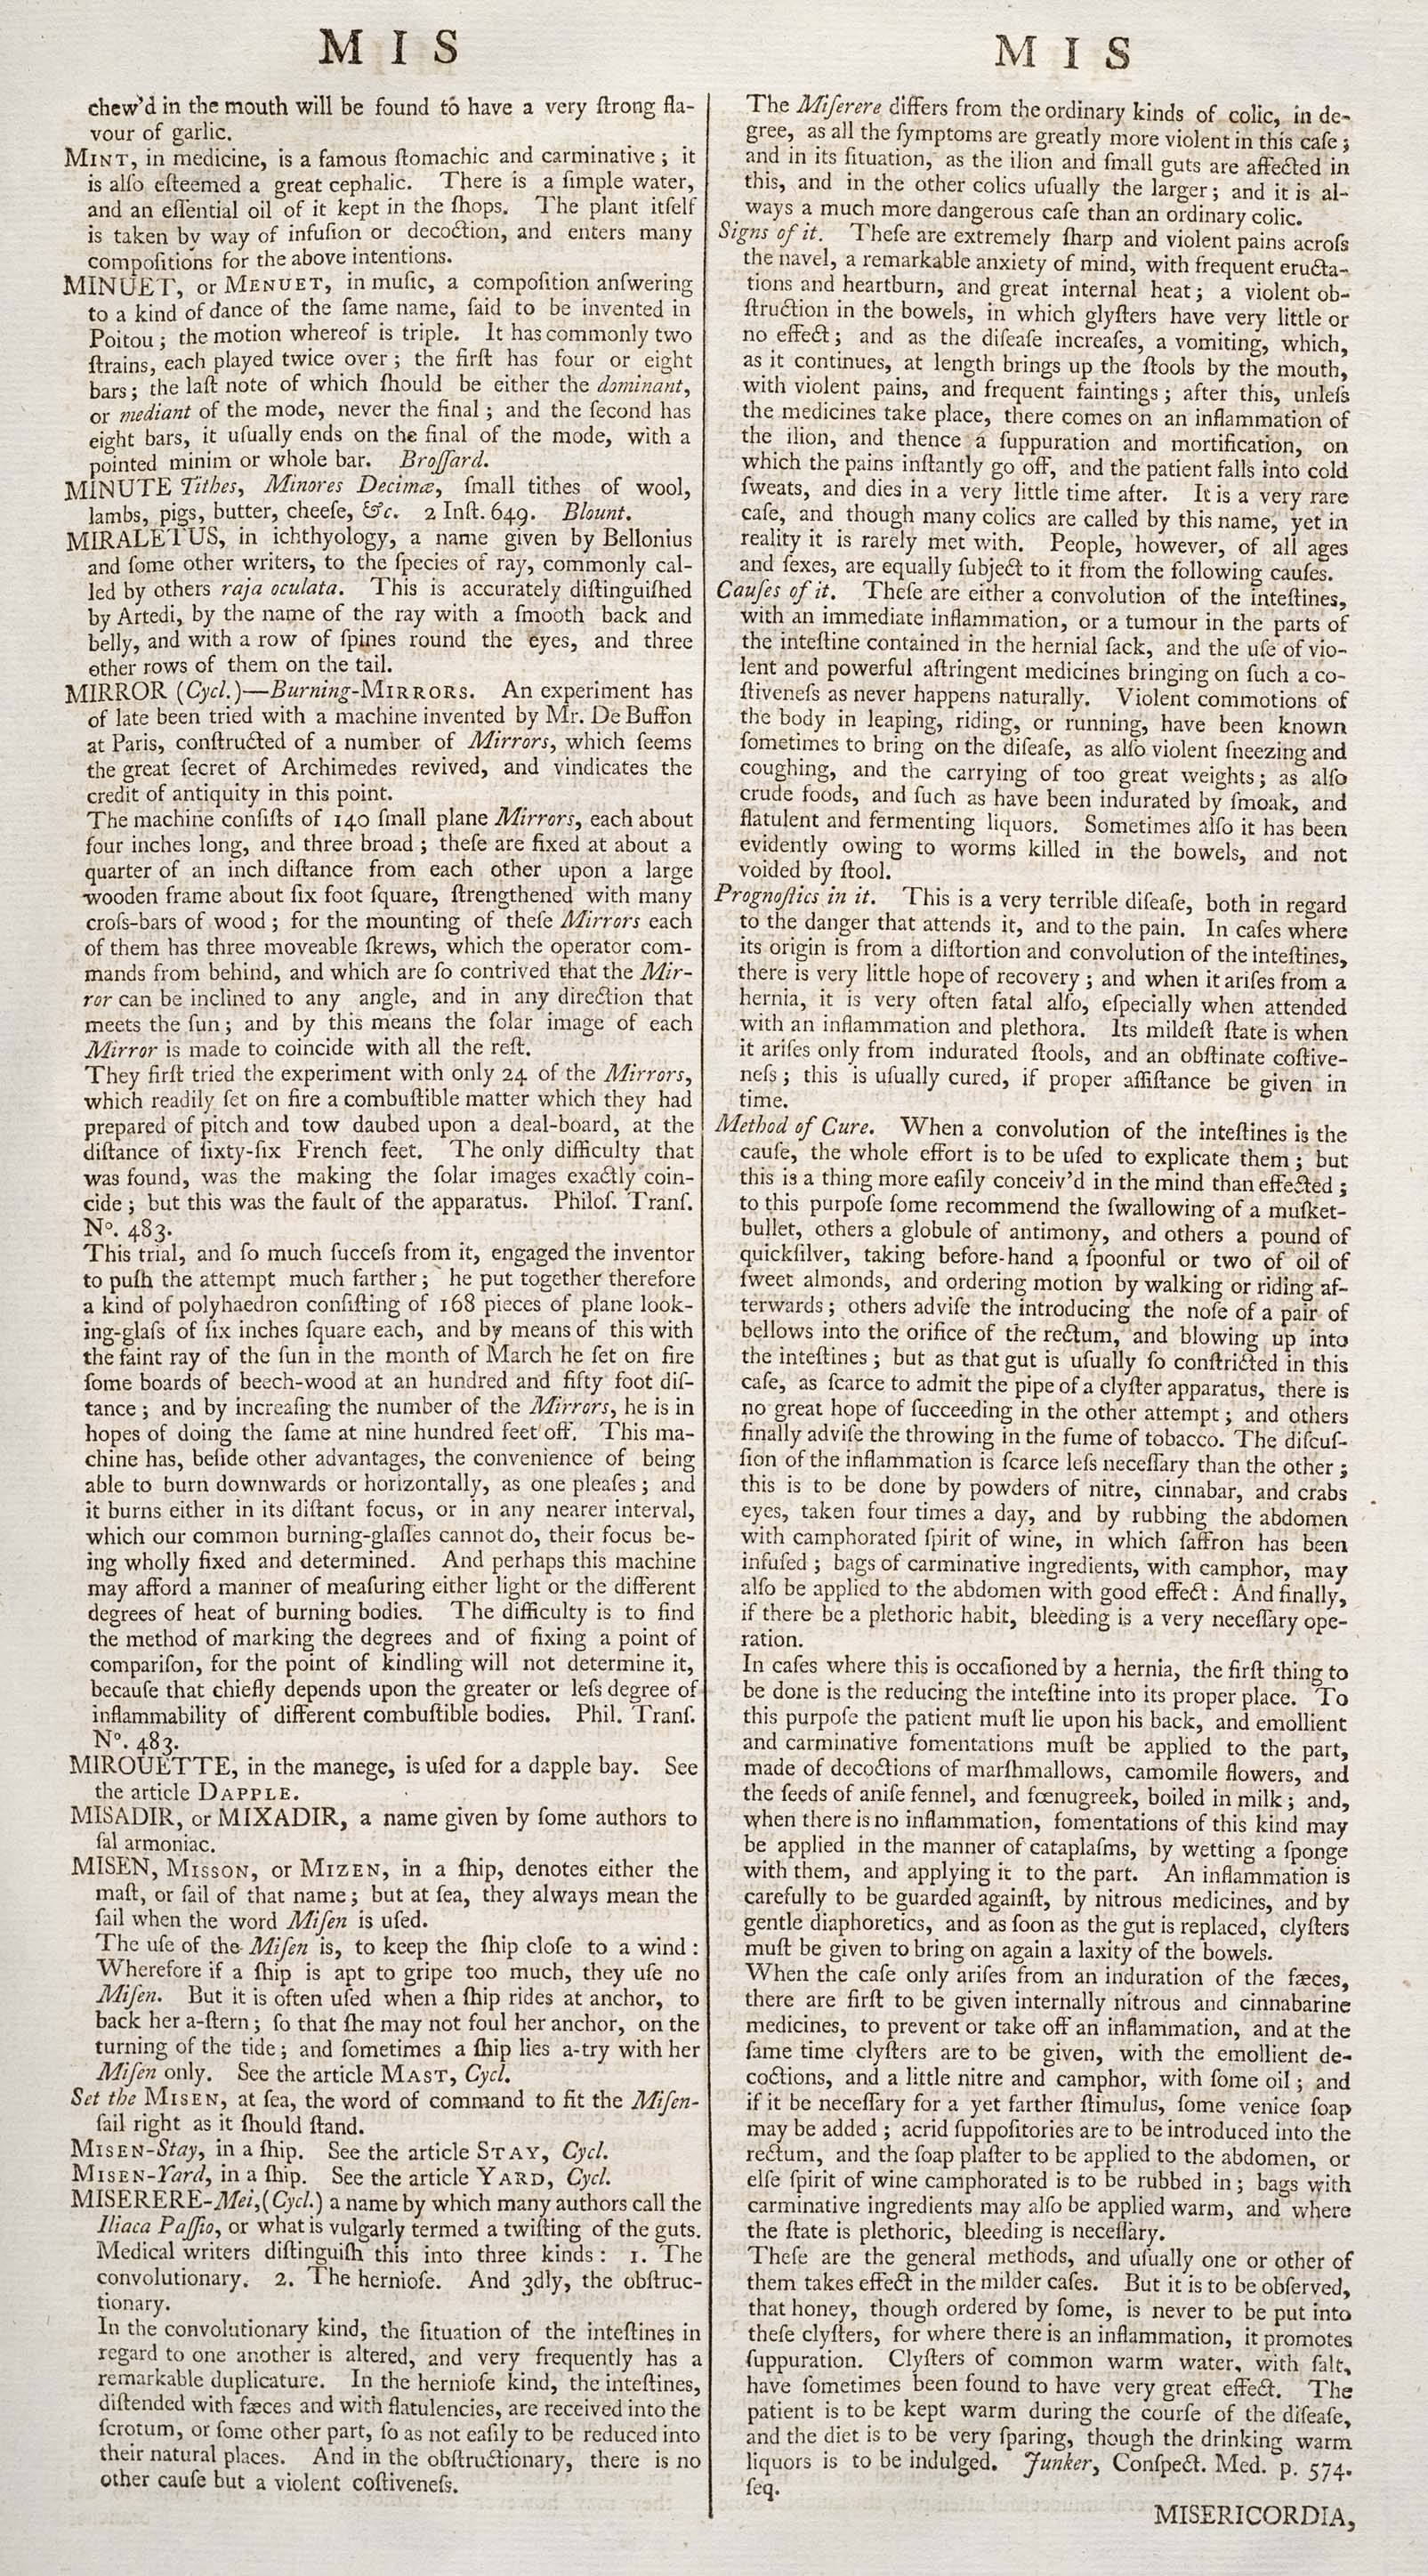 M I S
chew'd in the mouth will be found to have a very ſtrong fla-
vour of garlic.
MINT, in medicine, is a famous ſtomachic and carminative; it
is alſo eſteemed a great cephalic. There is a ſimple water,
and an eſſential oil of it kept in the ſhops. The plant itſelf
is taken by way of infuſion or decoction, and enters many
compoſitions for the above intentions.
MINUET, or MENUET, in muſic, a compoſition anſwering
to a kind of dance of the ſame name, ſaid to be invented in
Poitou; the motion whereof is triple. It has commonly two
ſtrains, each played twice over; the firſt has four or eight
bars; the laſt note of which ſhould be either the dominant,
or mediant of the mode, never the final; and the ſecond has
eight bars, it uſually ends on the final of the mode, with a
pointed minim or whole bar. Broſſard.
MINUTE Tithes, Minores Decimæ, ſmall tithes of wool,
lambs, pigs, butter, cheeſe, &c. 2 Inſt. 649. Blount.
MIRALETUS, in ichthyology, a name given by Bellonius
and ſome other writers, to the ſpecies of ray, commonly cal-
led by others raja oculata. This is accurately diſtinguiſhed
by Artedi, by the name of the ray with a ſmooth back and
belly, and with a row of ſpines round the eyes, and three
other rows of them on the tail.
MIRROR (Cycl.)—Burning-MIRRORS. An experiment has
of late been tried with a machine invented by Mr. De Buffon
at Paris, conſtructed of a number of Mirrors, which ſeems
the great ſecret of Archimedes revived, and vindicates the
credit of antiquity in this point.
The machine conſiſts of 140 ſmall plane Mirrors, each about
four inches long, and three broad; theſe are fixed at about a
quarter of an inch diſtance from each other upon a large
wooden frame about ſix foot ſquare, ſtrengthened with many
croſs-bars of wood; for the mounting of theſe Mirrors each
of them has three moveable ſkrews, which the operator com-
mands from behind, and which are ſo contrived that the Mir-
ror can be inclined to any angle, and in any direction that
meets the ſun; and by this means the ſolar image of each
Mirror is made to coincide with all the reſt.
They firſt tried the experiment with only 24 of the Mirrors,
which readily ſet on fire a combuſtible matter which they had
prepared of pitch and tow daubed upon a deal-board, at the
diſtance of ſixty-ſix French feet. The only difficulty that
was found, was the making the ſolar images exactly coin-
cide; but this was the fault of the apparatus. Philoſ. Tranſ.
Nº. 483.
This trial, and ſo much ſucceſs from it, engaged the inventor
to puſh the attempt much farther; he put together therefore
a kind of polyhaedron conſiſting of 168 pieces of plane look-
ing-glaſs of ſix inches ſquare each, and by means of this with
the faint ray of the ſun in the month of March he ſet on fire
ſome boards of beech-wood at an hundred and fifty foot diſ-
tance; and by increaſing the number of the Mirrors, he is in
hopes of doing the ſame at nine hundred feet off. This ma-
chine has, beſide other advantages, the convenience of being
able to burn downwards or horizontally, as one pleaſes; and
it burns either in its diſtant focus, or in any nearer interval,
which our common burning-glaſſes cannot do, their focus be-
ing wholly fixed and determined. And perhaps this machine
may afford a manner of meaſuring either light or the different
degrees of heat of burning bodies. The difficulty is to find
the method of marking the degrees and of fixing a point of
compariſon, for the point of kindling will not determine it,
becauſe that chiefly depends upon the greater or leſs degree of
inflammability of different combuſtible bodies. Phil. Tranſ.
Nº. 483.
MIROUETTE, in the manege, is uſed for a dapple bay. See
the article DAPPLE.
MISADIR, or MIXADIR, a name given by ſome authors to
ſal armoniac.
MISEN, MISSON, or MIZEN, in a ſhip, denotes either the
maſt, or ſail of that name; but at ſea, they always mean the
ſail when the word Miſen is uſed.
The uſe of the Miſen is, to keep the ſhip cloſe to a wind:
Wherefore if a ſhip is apt to gripe too much, they uſe no
Miſen. But it is often uſed when a ſhip rides at anchor, to
back her a-ſtern; ſo that ſhe may not foul her anchor, on the
turning of the tide; and ſometimes a ſhip lies a-try with her
Miſen only. See the article MAST, Cycl.
Set the MISEN, at ſea, the word of command to fit the Miſen-
ſail right as it ſhould ſtand.
MISEN-Stay, in a ſhip. See the article STAY, Cycl.
MISEN-Yard, in a ſhip. See the article YARD, Cycl.
MISERERE-Mei, (Cycl.) a name by which many authors call the
Iliaca Paſſio, or what is vulgarly termed a twiſting of the guts.
Medical writers diſtinguiſh this into three kinds: 1. The
convolutionary. 2. The hernioſe. And 3dly, the obſtruc-
tionary.
In the convolutionary kind, the ſituation of the inteſtines in
regard to one another is altered, and very frequently has a
remarkable duplicature. In the hernioſe kind, the inteſtines,
diſtended with fæces and with flatulencies, are received into the
ſcrotum, or ſome other part, ſo as not eaſily to be reduced into
their natural places. And in the obſtructionary, there is no
other cauſe but a violent coſtiveneſs.
M I S
The Miſerere differs from the ordinary kinds of colic, in de-
gree, as all the ſymptoms are greatly more violent in this caſe;
and in its ſituation, as the ilion and ſmall guts are affected in
this, and in the other colics uſually the larger; and it is al-
ways a much more dangerous caſe than an ordinary colic.
Signs of it. Theſe are extremely ſharp and violent pains acroſs
the navel, a remarkable anxiety of mind, with frequent eructa-
tions and heartburn, and great internal heat; a violent ob-
ſtruction in the bowels, in which glyſters have very little or
no effect; and as the diſeaſe increaſes, a vomiting, which,
as it continues, at length brings up the ſtools by the mouth,
with violent pains, and frequent faintings; after this, unleſs
the medicines take place, there comes on an inflammation of
the ilion, and thence a ſuppuration and mortification, on
which the pains inſtantly go off, and the patient falls into cold
ſweats, and dies in a very little time after. It is a very rare
caſe, and though many colics are called by this name, yet in
reality it is rarely met with. People, however, of all ages
and ſexes, are equally ſubject to it from the following cauſes.
Cauſes of it. Theſe are either a convolution of the inteſtines,
with an immediate inflammation, or a tumour in the parts of
the inteſtine contained in the hernial ſack, and the uſe of vio-
lent and powerful aſtringent medicines bringing on ſuch a co-
ſtiveneſs as never happens naturally. Violent commotions of
the body in leaping, riding, or running, have been known
ſometimes to bring on the diſeaſe, as alſo violent ſneezing and
coughing, and the carrying of too great weights; as alſo
crude foods, and ſuch as have been indurated by ſmoak, and
flatulent and fermenting liquors. Sometimes alſo it has been
evidently owing to worms killed in the bowels, and not
voided by ſtool.
Prognoſtics in it. This is a very terrible diſeaſe, both in regard
to the danger that attends it, and to the pain. In caſes where
its origin is from a diſtortion and convolution of the inteſtines,
there is very little hope of recovery; and when it ariſes from a
hernia, it is very often fatal alſo, eſpecially when attended
with an inflammation and plethora. Its mildeſt ſtate is when
it ariſes only from indurated ſtools, and an obſtinate coſtive-
neſs; this is uſually cured, if proper aſſiſtance be given in
time.
Method of Cure. When a convolution of the inteſtines is the
cauſe, the whole effort is to be uſed to explicate them; but
this is a thing more eaſily conceiv'd in the mind than effected;
to this purpoſe ſome recommend the ſwallowing of a muſket-
bullet, others a globule of antimony, and others a pound of
quickſilver, taking before-hand a ſpoonful or two of oil of
ſweet almonds, and ordering motion by walking or riding af-
terwards; others adviſe the introducing the noſe of a pair of
bellows into the orifice of the rectum, and blowing up into
the inteſtines; but as that gut is uſually ſo conſtricted in this
caſe, as ſcarce to admit the pipe of a clyſter apparatus, there is
no great hope of ſucceeding in the other attempt; and others
finally adviſe the throwing in the fume of tobacco. The diſcuſ-
ſion of the inflammation is ſcarce leſs neceſſary than the other;
this is to be done by powders of nitre, cinnabar, and crabs
eyes, taken four times a day, and by rubbing the abdomen
with camphorated ſpirit of wine, in which ſaffron has been
infuſed; bags of carminative ingredients, with camphor, may
alſo be applied to the abdomen with good effect: And finally,
if there be a plethoric habit, bleeding is a very neceſſary ope-
ration.
In caſes where this is occaſioned by a hernia, the firſt thing to
be done is the reducing the inteſtine into its proper place. To
this purpoſe the patient muſt lie upon his back, and emollient
and carminative fomentations muſt be applied to the part,
made of decoctions of marſhmallows, camomile flowers, and
the ſeeds of aniſe fennel, and fœnugreek, boiled in milk; and,
when there is no inflammation, fomentations of this kind may
be applied in the manner of cataplaſms, by wetting a ſponge
with them, and applying it to the part. An inflammation is
carefully to be guarded againſt, by nitrous medicines, and by
gentle diaphoretics, and as ſoon as the gut is replaced, clyſters
muſt be given to bring on again a laxity of the bowels.
When the caſe only ariſes from an induration of the fæces,
there are firſt to be given internally nitrous and cinnabarine
medicines, to prevent or take off an inflammation, and at the
ſame time clyſters are to be given, with the emollient de-
coctions, and a little nitre and camphor, with ſome oil; and
if it be neceſſary for a yet farther ſtimulus, ſome venice ſoap
may be added; acrid ſuppoſitories are to be introduced into the
rectum, and the ſoap plaſter to be applied to the abdomen, or
elſe ſpirit of wine camphorated is to be rubbed in; bags with
carminative ingredients may alſo be applied warm, and where
the ſtate is plethoric, bleeding is neceſſary.
Theſe are the general methods, and uſually one or other of
them takes effect in the milder caſes. But it is to be obſerved,
that honey, though ordered by ſome, is never to be put into
theſe clyſters, for where there is an inflammation, it promotes
ſuppuration. Clyſters of common warm water, with ſalt,
have ſometimes been found to have very great effect. The
patient is to be kept warm during the courſe of the diſeaſe,
and the diet is to be very ſparing, though the drinking warm
liquors is to be indulged. Junker, Conſpect. Med. p. 574.
ſeq.
MISERICORDIA,